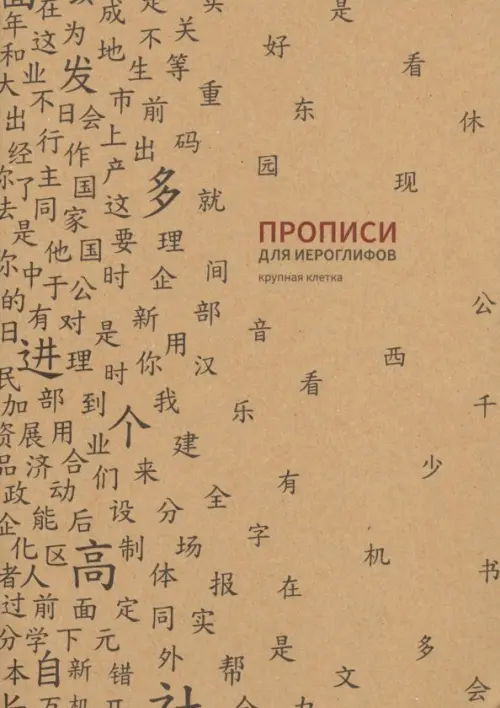 在 成 是 实 是
年 这 为 地 不 关
和 业 发 生 等 好 看
大 不 日 会 市 前 重 东 休
出 行 作 上 出 码
经 主 国 产 多 园 现
你 了 同 家 这 就
去 是 他 国 要 理
ПРОПИСИ
ДЛЯ ИЕРОГЛИФОВ
крупная клетка
你 中 于 公 时 企 间
的 有 对 是 新 部 音 公
日 进 理 时 你 用 汉 看 西
民 加 部 到 个 我 乐 千
资 展 用 业 建
品 济 合 们 来 有 少
政 动 设 分 全
企 能 后 字
化 区 高 制 场 机
者 人 体 报 在 书
过 前 面 定 同 实
分 学 下 元 外 是 多
本 自 新 错 帮 文 会